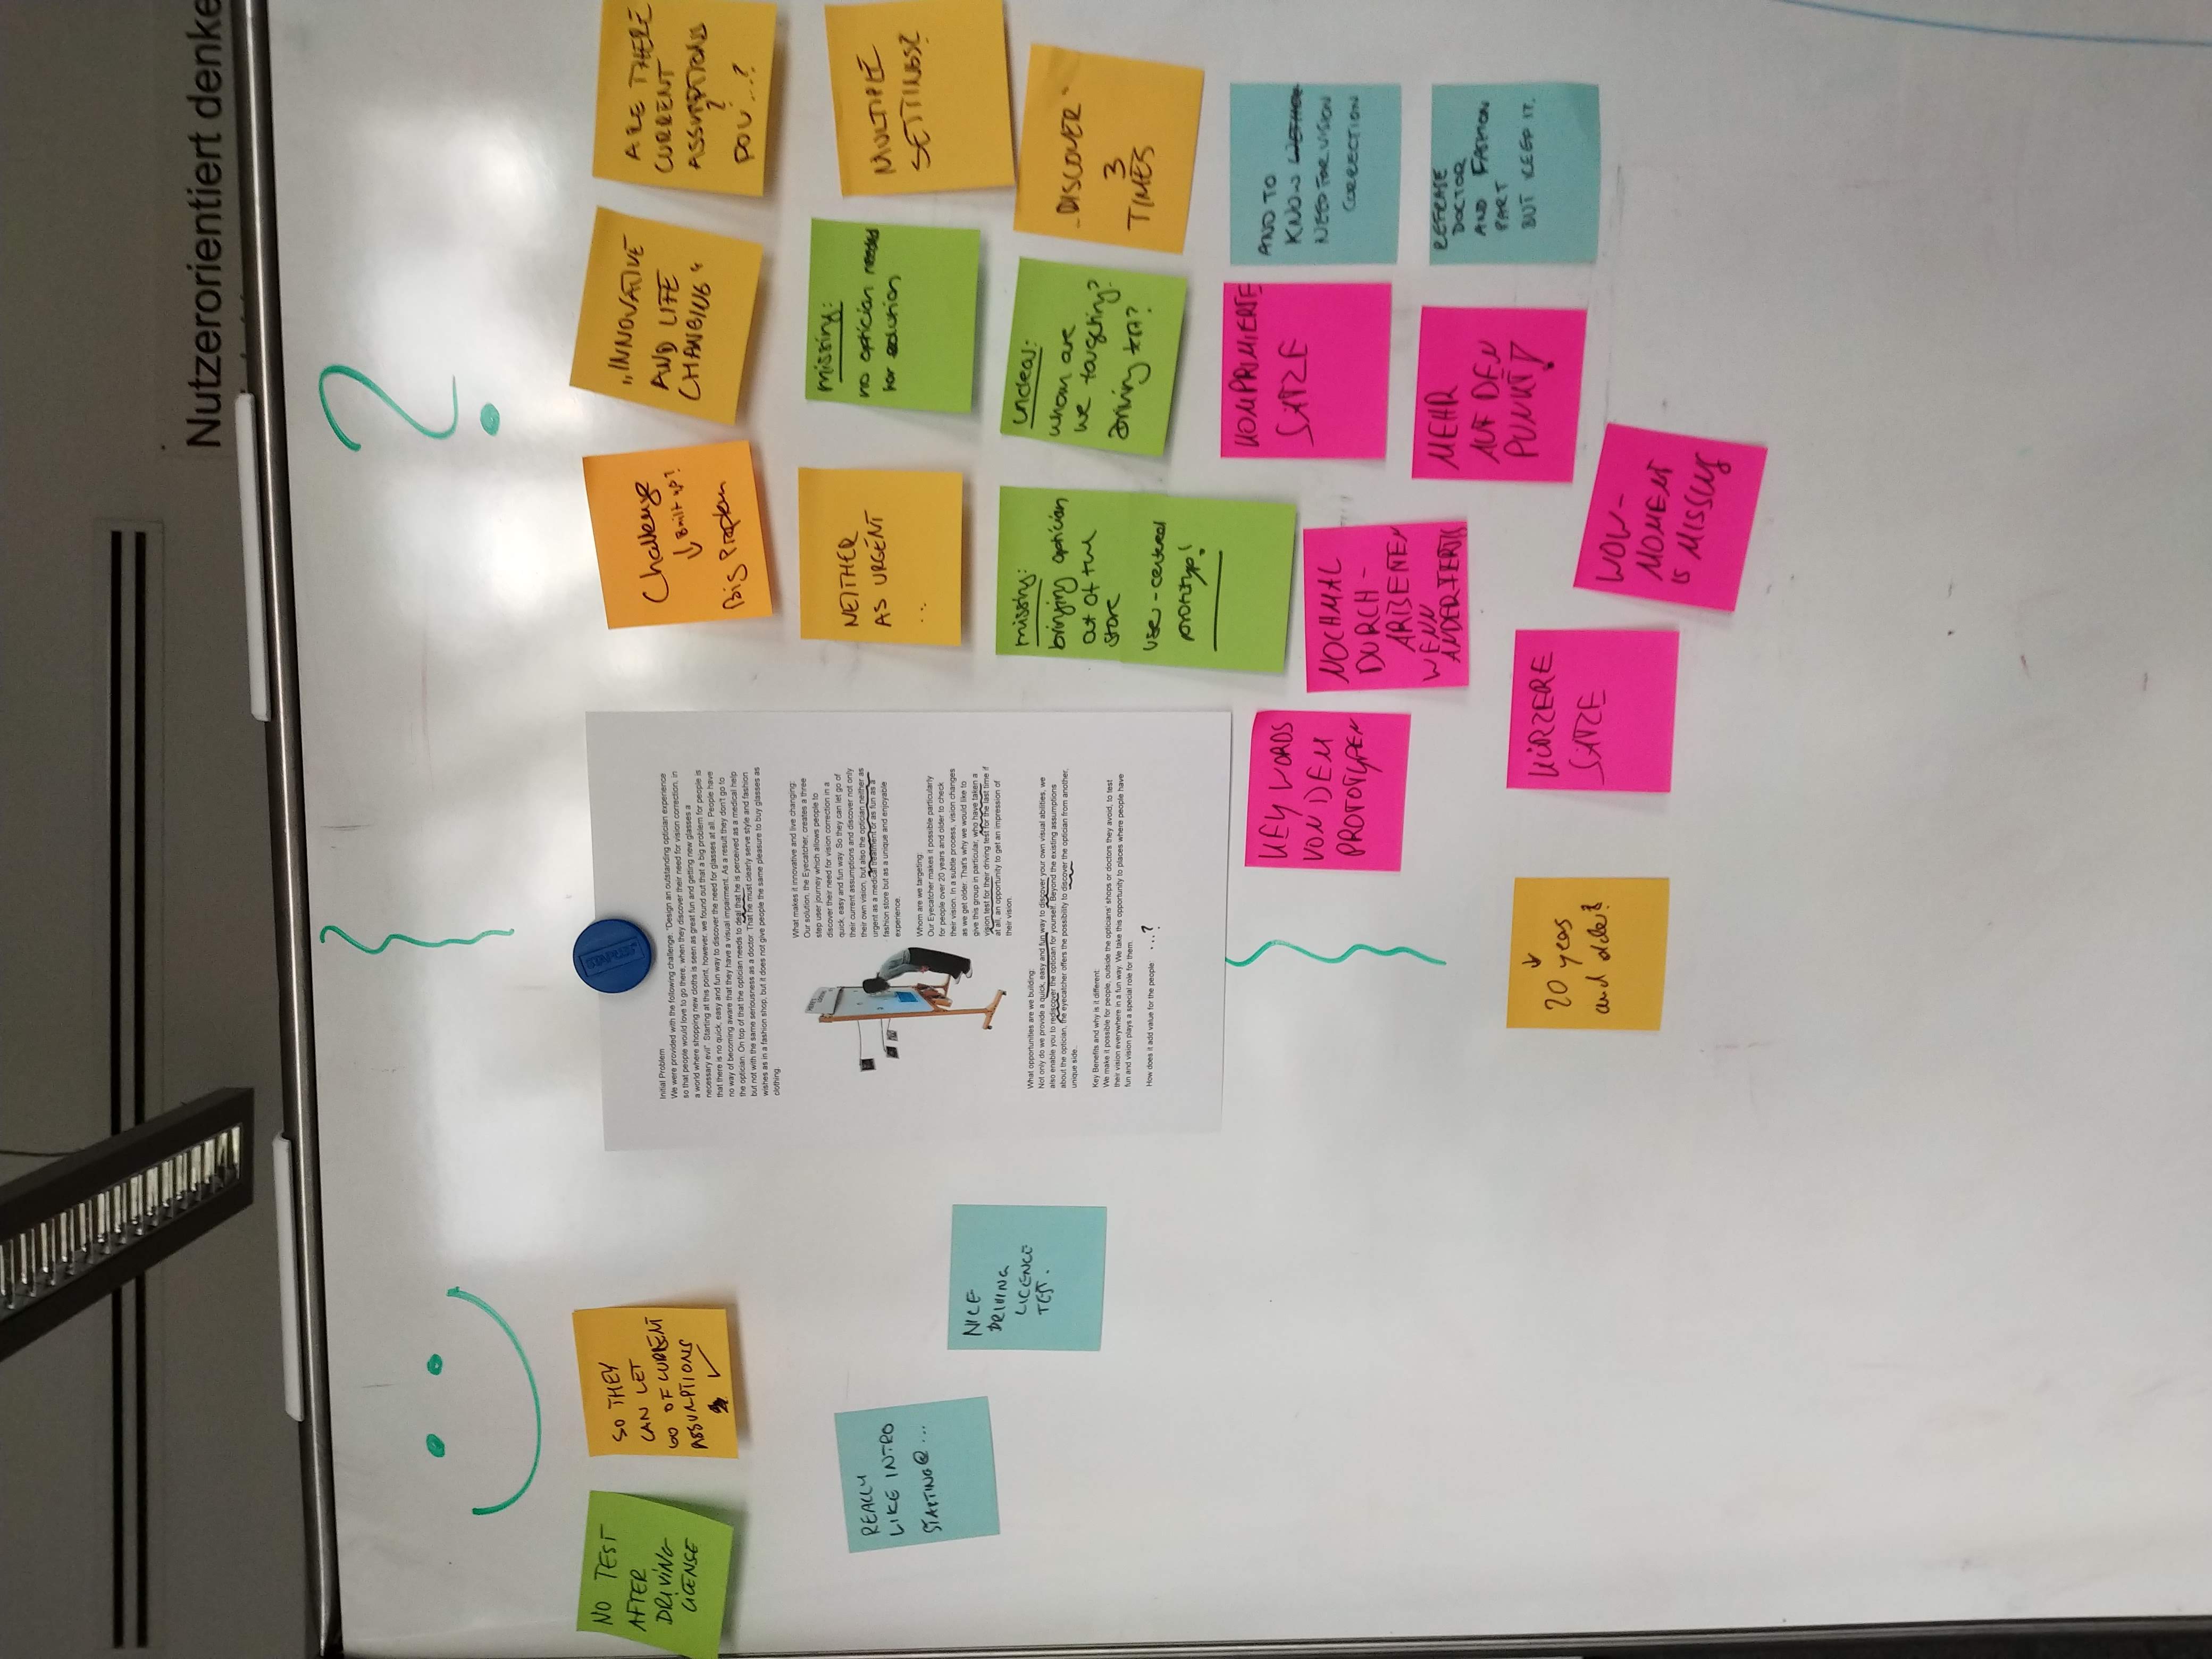 Nutzerorientiert denke
?
NO TEST
AFTER
DRIVING
LICENSE
SO THEY
CAN LET
GO OF CURRENT
ASSUMPTIONS
REALLY
LIKE INTRO
STARTING @ ...
NICE
DRIVING
LICENCE
TEST.
Initial Problem
We were provided with the following challenge: "Design an outstanding optician experience
so that people would love to go there, when they discover their need for vision correction, in
a world where shopping new cloths is seen as great fun and getting new glasses a
necessary evil". Starting at this point, however, we found out that a big problem for people is
that there is no quick, easy and fun way to discover the need for glasses at all. People have
no way of becoming aware that they have a visual impairment. As a result they don't go to
the optician. On top of that the optician needs to deal that he is perceived as a medical help
but not with the same seriousness as a doctor. That he must clearly serve style and fashion
wishes as in a fashion shop, but it does not give people the same pleasure to buy glasses as
clothing.
What makes it innovative and live changing:
Our solution, the Eyecatcher, creates a three
step user journey which allows people to
discover their need for vision correction in a
quick, easy and fun way. So they can let go of
their current assumptions and discover not only
their own vision, but also the optician neither as
urgent as a medical treatment or as fun as a
fashion store but as a unique and enjoyable
experience.
Whom are we targeting:
Our Eyecatcher makes it possible particularly
for people over 20 years and older to check
their vision. In a subtle process, vision changes
as we get older. That's why we would like to
give this group in particular, who have taken a
vision test for their driving test for the last time if
at all, an opportunity to get an impression of
their vision.
What opportunities are we building:
Not only do we provide a quick, easy and fun way to discover your own visual abilities, we
also enable you to rediscover the optician for yourself. Beyond the existing assumptions
about the optician, the eyecatcher offers the possibility to discover the optician from another,
unique side.
Key Benefits and why is it different:
We make it possible for people, outside the opticians' shops or doctors they avoid, to test
their vision everywhere in a fun way. We take this opportunity to places where people have
fun and vision plays a special role for them.
How does it add value for the people ...?
Challenge
↓ Built up?
Big Problem
„INNOVATIVE
AND LIFE
CHANGING“
ARE THERE
CURRENT
ASSUMPTIONS
?
POV ...?
NEITHER
AS URGENT
..
missing:
no optician needed
for solution
MULTIPLE
SETTINGS?
missing:
bringing optician
out of the
store
user-centered
prototyp!
unclear:
whom are
we targeting?
driving test?
„DISCOVER“
3
TIMES
KEY WORDS
VON DEM
PROTOTYPEN
NOCHMAL
DURCH-
ARBEITEN
WENN
KOMPRIMIERTE
SÄTZE
AND TO
KNOW WETHER
NEED FOR VISION
CORRECTION
MEHR
AUF DEN
PUNKT!
REFRASE
DOCTOR
AND FASHION
PART
BUT KEEP IT.
↓
20 years
and older?
KÜRZERE
SÄTZE
WOW-
MOMENT
IS MISSING